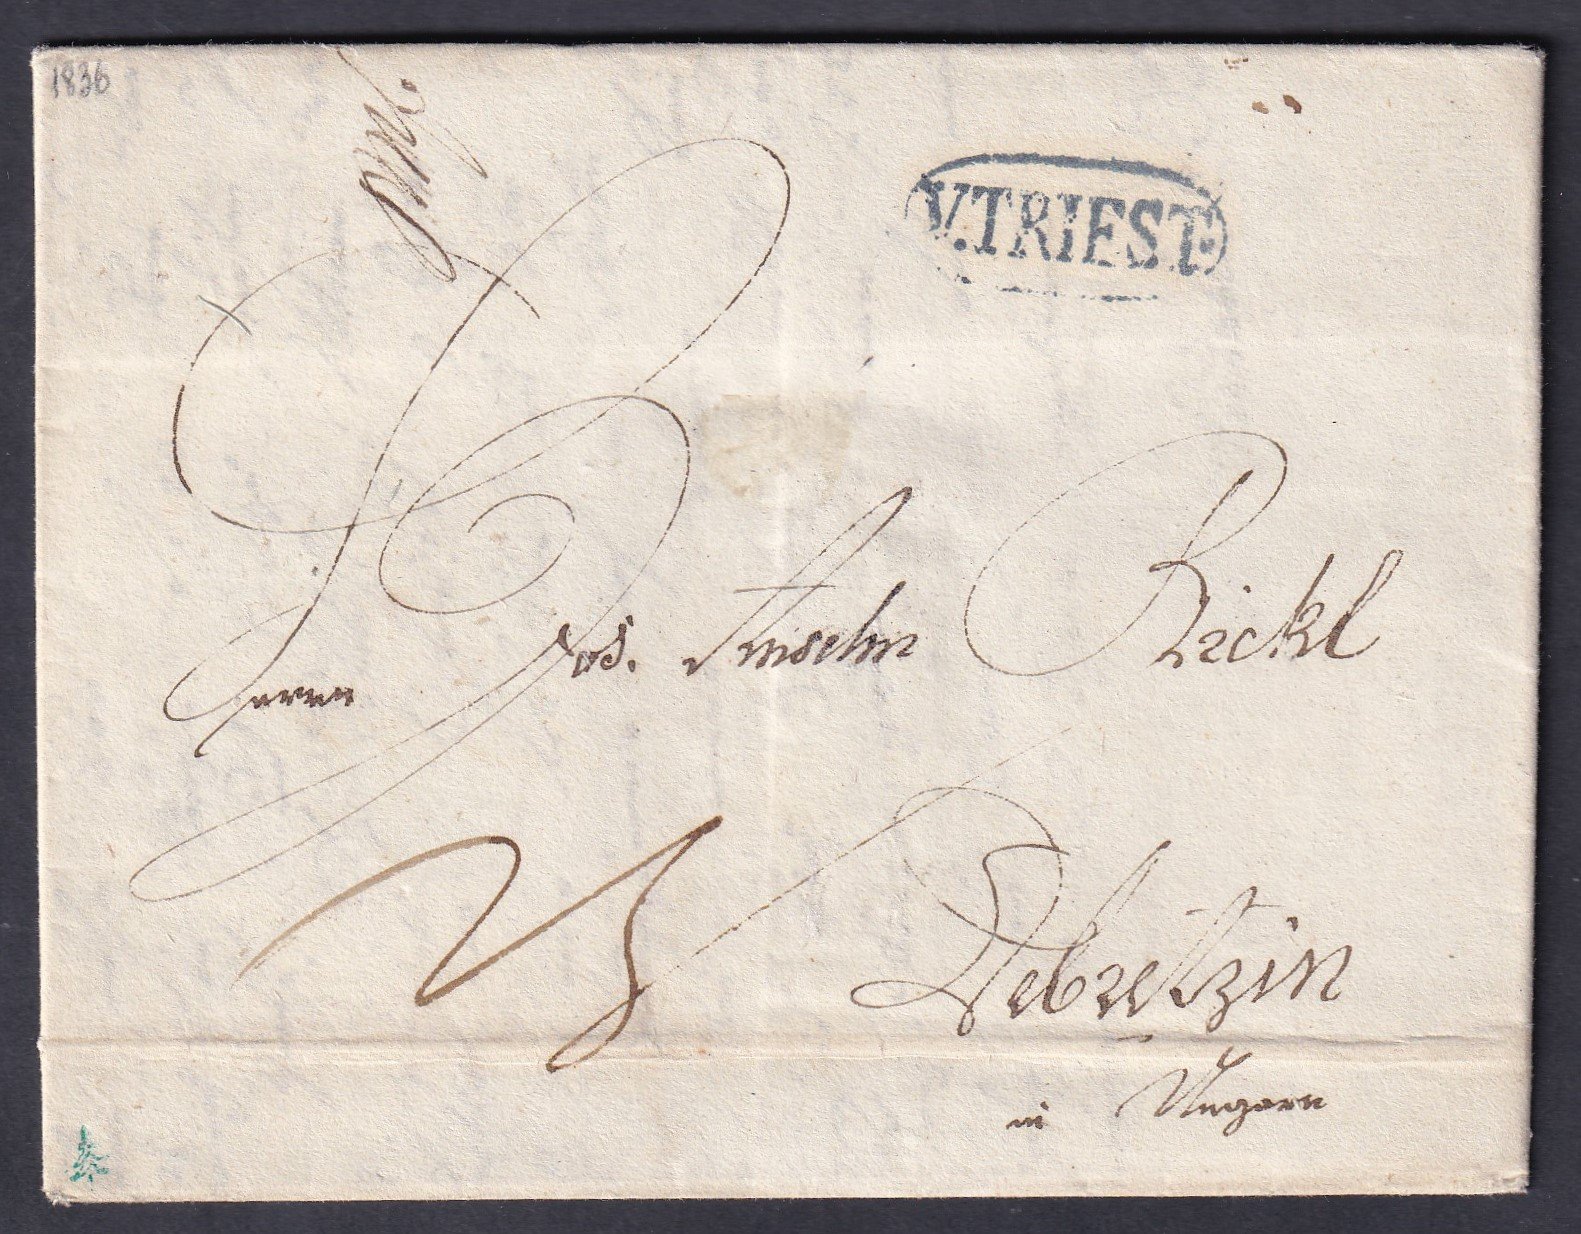 1836
V. TRIEST.
Herrn Jos. Anselm Rickl
Debretzin
in Ungarn